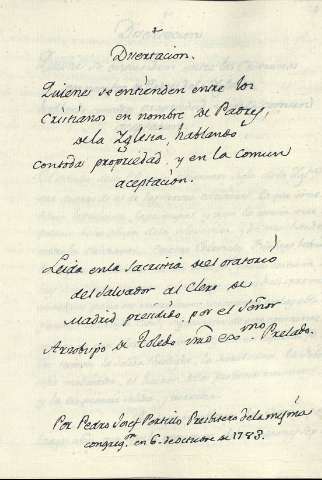 +
Disertacion.
Quienes se entienden entre los
Cristianos en nombre de Padres,
de la Yglesia, hablando
con toda propiedad, y en la comun
aceptación.
Leida en la Sacristia del oratorio
del Salvador al Clero de
Madrid presidido, por el Señor
Arzobispo de Toledo vmô exmo. Prelado.
Por Pedro Josef Portillo Presbitero de la misma
congregn. en 6. de octubre de 1783.